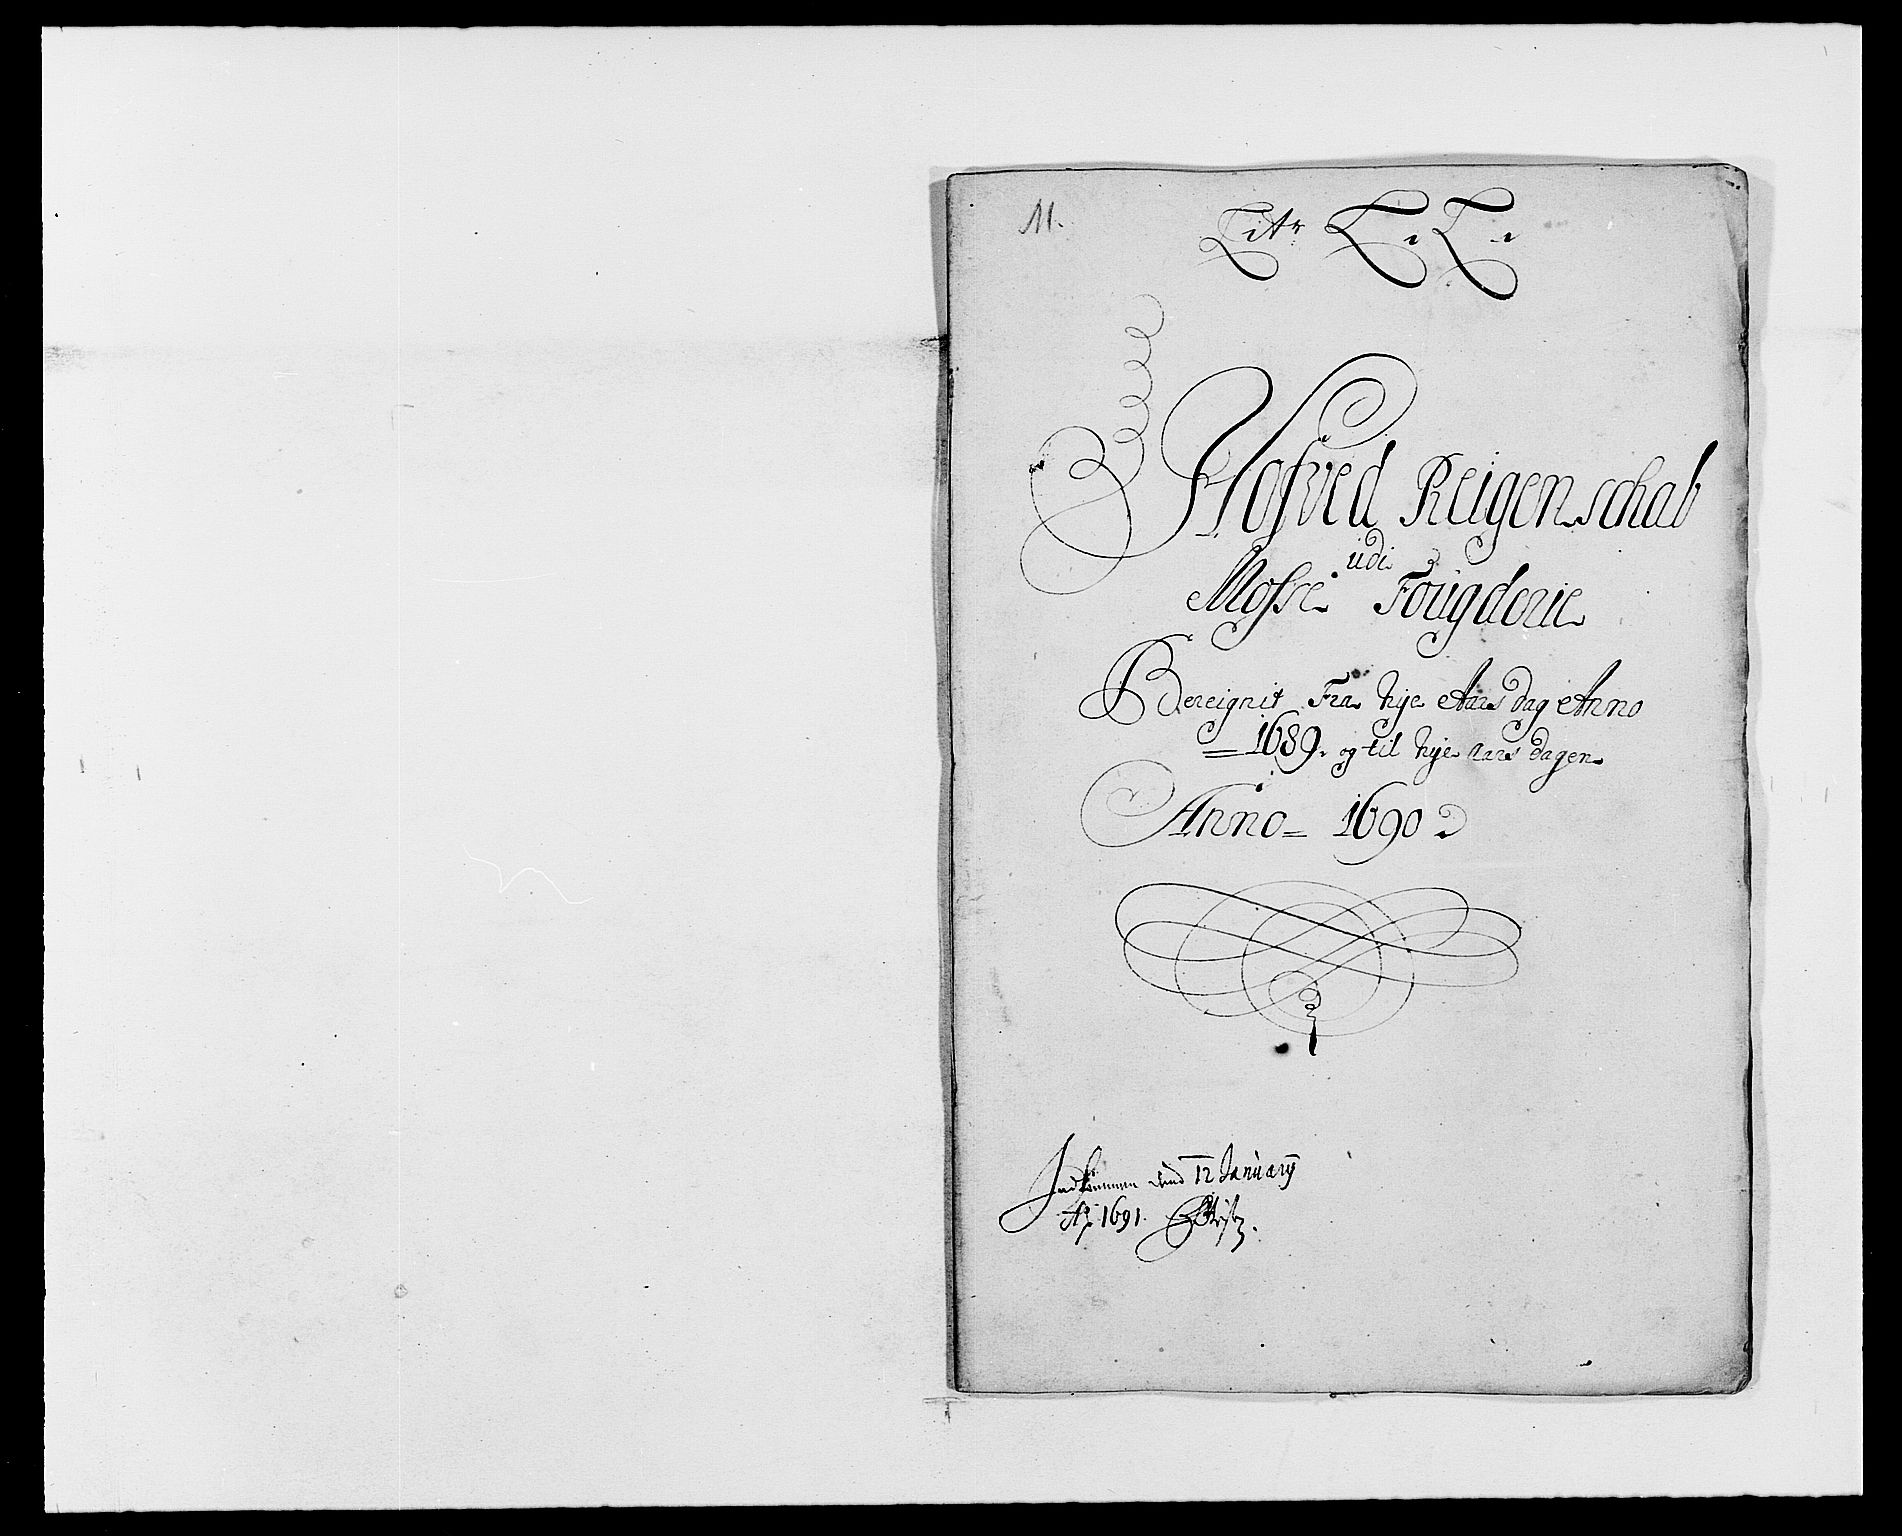 11.
Litr L. L.
Hofved Reigenschab
udi
Mosse Fougderie
Bereignit Fra Nye Aars dag Anno
1689. og til Nye aars dagen
Anno 1690
Indkommen dend 12 January
Ao 1691.